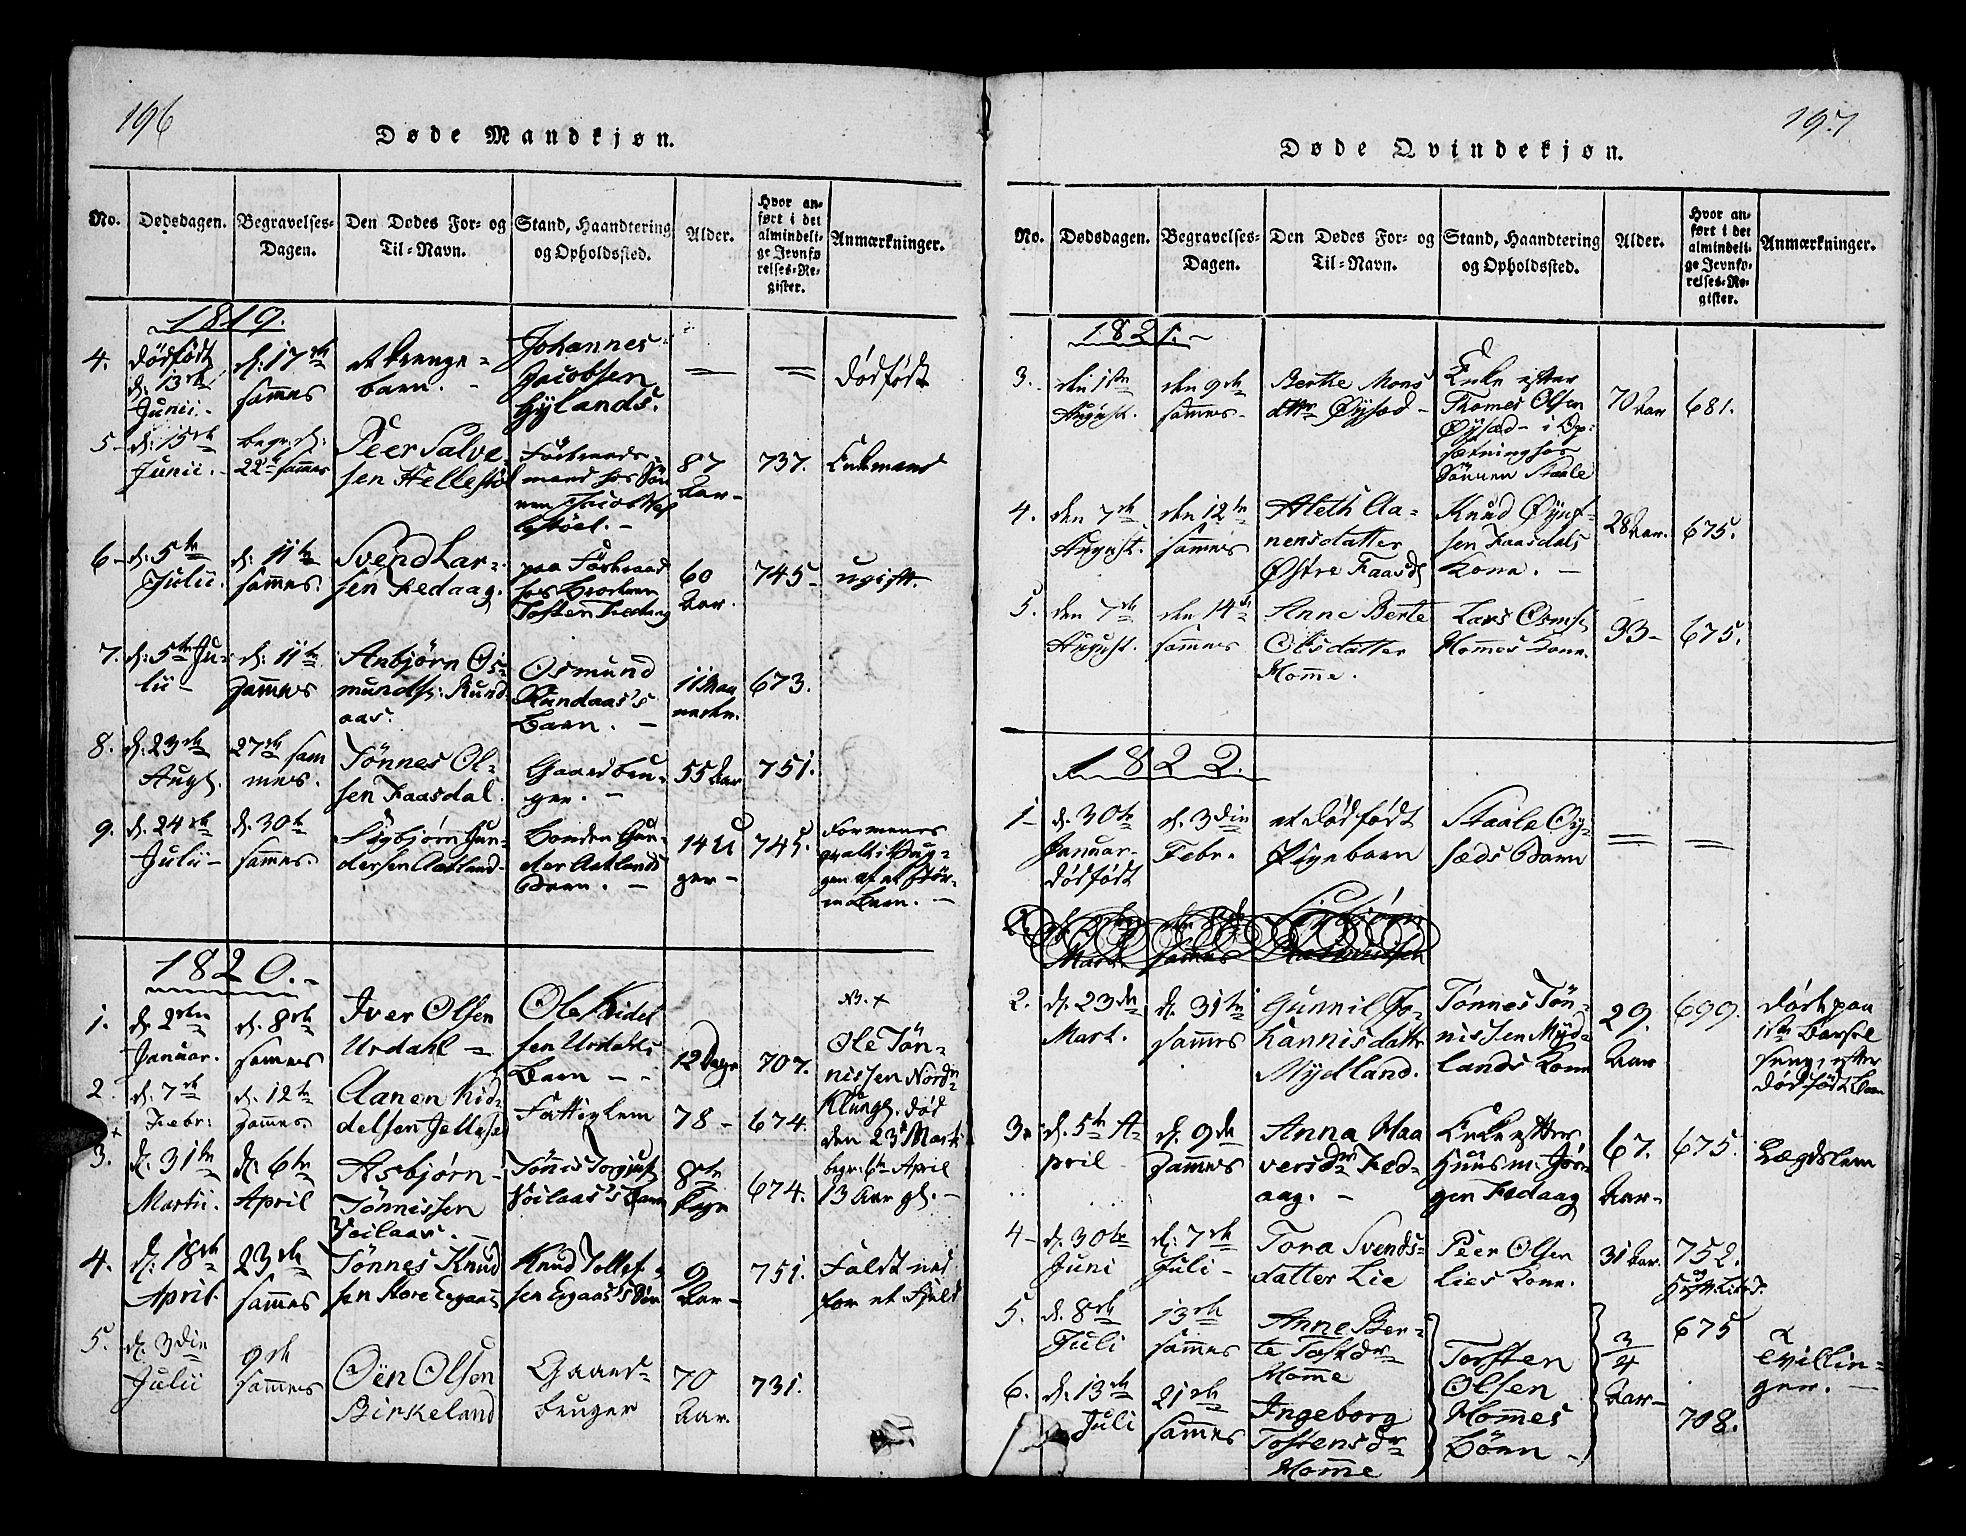 196
Døde Mandkjøn.
No.
Dødsdagen.
Begravelses-
Dagen.
Den Dødes For- og
Til-Navn.
Stand, Haandtering
og Opholdssted.
Alder.
Hvor an-
ført i det
almindeli-
ge Jevnfø-
relses-Re-
gister.
Anmærkninger.
1819.
4.
dødfødt
d: 13de
Junii.
d: 17de
sammes
et drenge-
barn.
Johannes
Jacobsen
Hylands.
=
=
dødfødt
5
d: 15de
Junii.
begr: d:
22de sammes
Peer Salve-
sen Hellestöl
Föderaads-
mand hos Sön
nen Jacob Hel
lestöel.
87
Aar
737.
Enkemand
6
d: 5te
Julii.
d: 11te
sammes.
Svend Lar-
sen Fedaag.
paa Föderaad
hos Broderen
Tosten Fedaag
60
Aar.
745
ugift.
7.
d: 5te Ju-
lii
d: 11te
sammes
Anbjörn Os-
mundsf: Rund
aas.
Osmund
Rundaas's
Barn.
11 Maa
neder.
673.
8.
d: 23de
Augs.
27de sam
mes.
Tönnes Ol-
sen Faasdal.
Gaardbru-
ger.
55 Aar
751.
9.
d. 24de
Julii
d. 30te
sammes.
Sigbjörn Gun-
dersen Aatland
Bonden Gun-
der Aatlands
Barn.
14 U
ger
745.
formenes
qvalt i Vug-
gen af et stör-
re Barn.
1820.
1.
d. 2den
Januar.
d. 8de
sammes
Iver Olsen
Urdahl
Ole Kidel
sen Urdahls
Barn
12 Dage
707.
2.
d. 7de
Febr:
d. 12te
sammes.
Aanen Kid-
delsen Jellesø
Fattiglem
78
674.
NB. +
Ole Tön-
nissen Nordr
Klungl. död
den 23de Marti
begr: 6te April
13 Aar gl.
+
3.
d: 31te
Martii.
d: 6te
April
Asbjörn
Tönnissen
Veilaas.
Tönnis Torjus
Veilaas's Barn
8te
Dage
674.
4.
d: 18de
April.
23de
sammes
Tönnes Knud
sen Store Egaas
Knud Tollef
sen Egaas's Sön
9
Aar
751.
Faldt ned
for et Fjeld
5.
d: 3die
Julii
9de
sammes
Öen Olsen
Birkeland
Gaard-
bruger
70
Aar.
731.
197
Døde Qvindekjøn.
No.
Dødsdagen.
Begravelses-
Dagen.
Den Dødes For- og
Til-Navn.
Stand, Haandtering
og Opholdssted.
Alder.
Hvor an-
ført i det
almindeli-
ge Jevnfø-
relses-Re-
gister.
Anmærkninger.
1821.
3.
den 1ste
August.
den 9de
sammes.
Berthe Mons
dttr Öysæd
Enke efter
Thomes Olsen
Öysæd i Op-
sætning hos
Sönnen Staale
70 Aar
681.
4.
den 7de
August.
den 12te
sammes
Aleth Aa-
nensdatter
Östre Faasdl
Knud Öyuf-
sen Faasdals
Kone.
28 Aar.
675.
5.
den 7de
August.
den 14de
sammes
Anne Berte
Olsdatter
Homme.
Lars Osms
Hommes Kone.
33
675.
1822.
1
d. 30te
Januar
dödfödt
d. 3die
Febr.
et dödfödt
Pigebarn
Staale Öy-
sæds Barn
=
=
2.
Mart.
sammes
2.
d. 23de
Mart.
d. 31te
sammes
Gunnil Jo-
hannisdattr
Mydland.
Tönnes Tön-
nissen Myd-
lands Kone
29.
Aar
699.
döde paa
Barsel
seng efter
dödfödt Barn
3.
d. 5te A-
pril
d. 9de
sammes
Anna Haa
versdr Fed-
aag.
Enke efter
Huusm: Jör-
gen Fedaag
67.
Aar
675.
Lægdslem
4
d: 30te
Juni
d: 7de
Juli
Tora Svends-
datter Lie
Peer Olsen
Lies Kone.
31 Aar.
752.
5.
d. 8de
Juli
13de
sammes
Anne Ber-
te Tostdr
Homme
Torsten
Olsen
Hommes
Börn
3/4
Aar
675
2
Tvillin-
ger.
6.
d. 13de
Juli
21de
sammes
Ingeborg
Tostensdr
Homme
708.